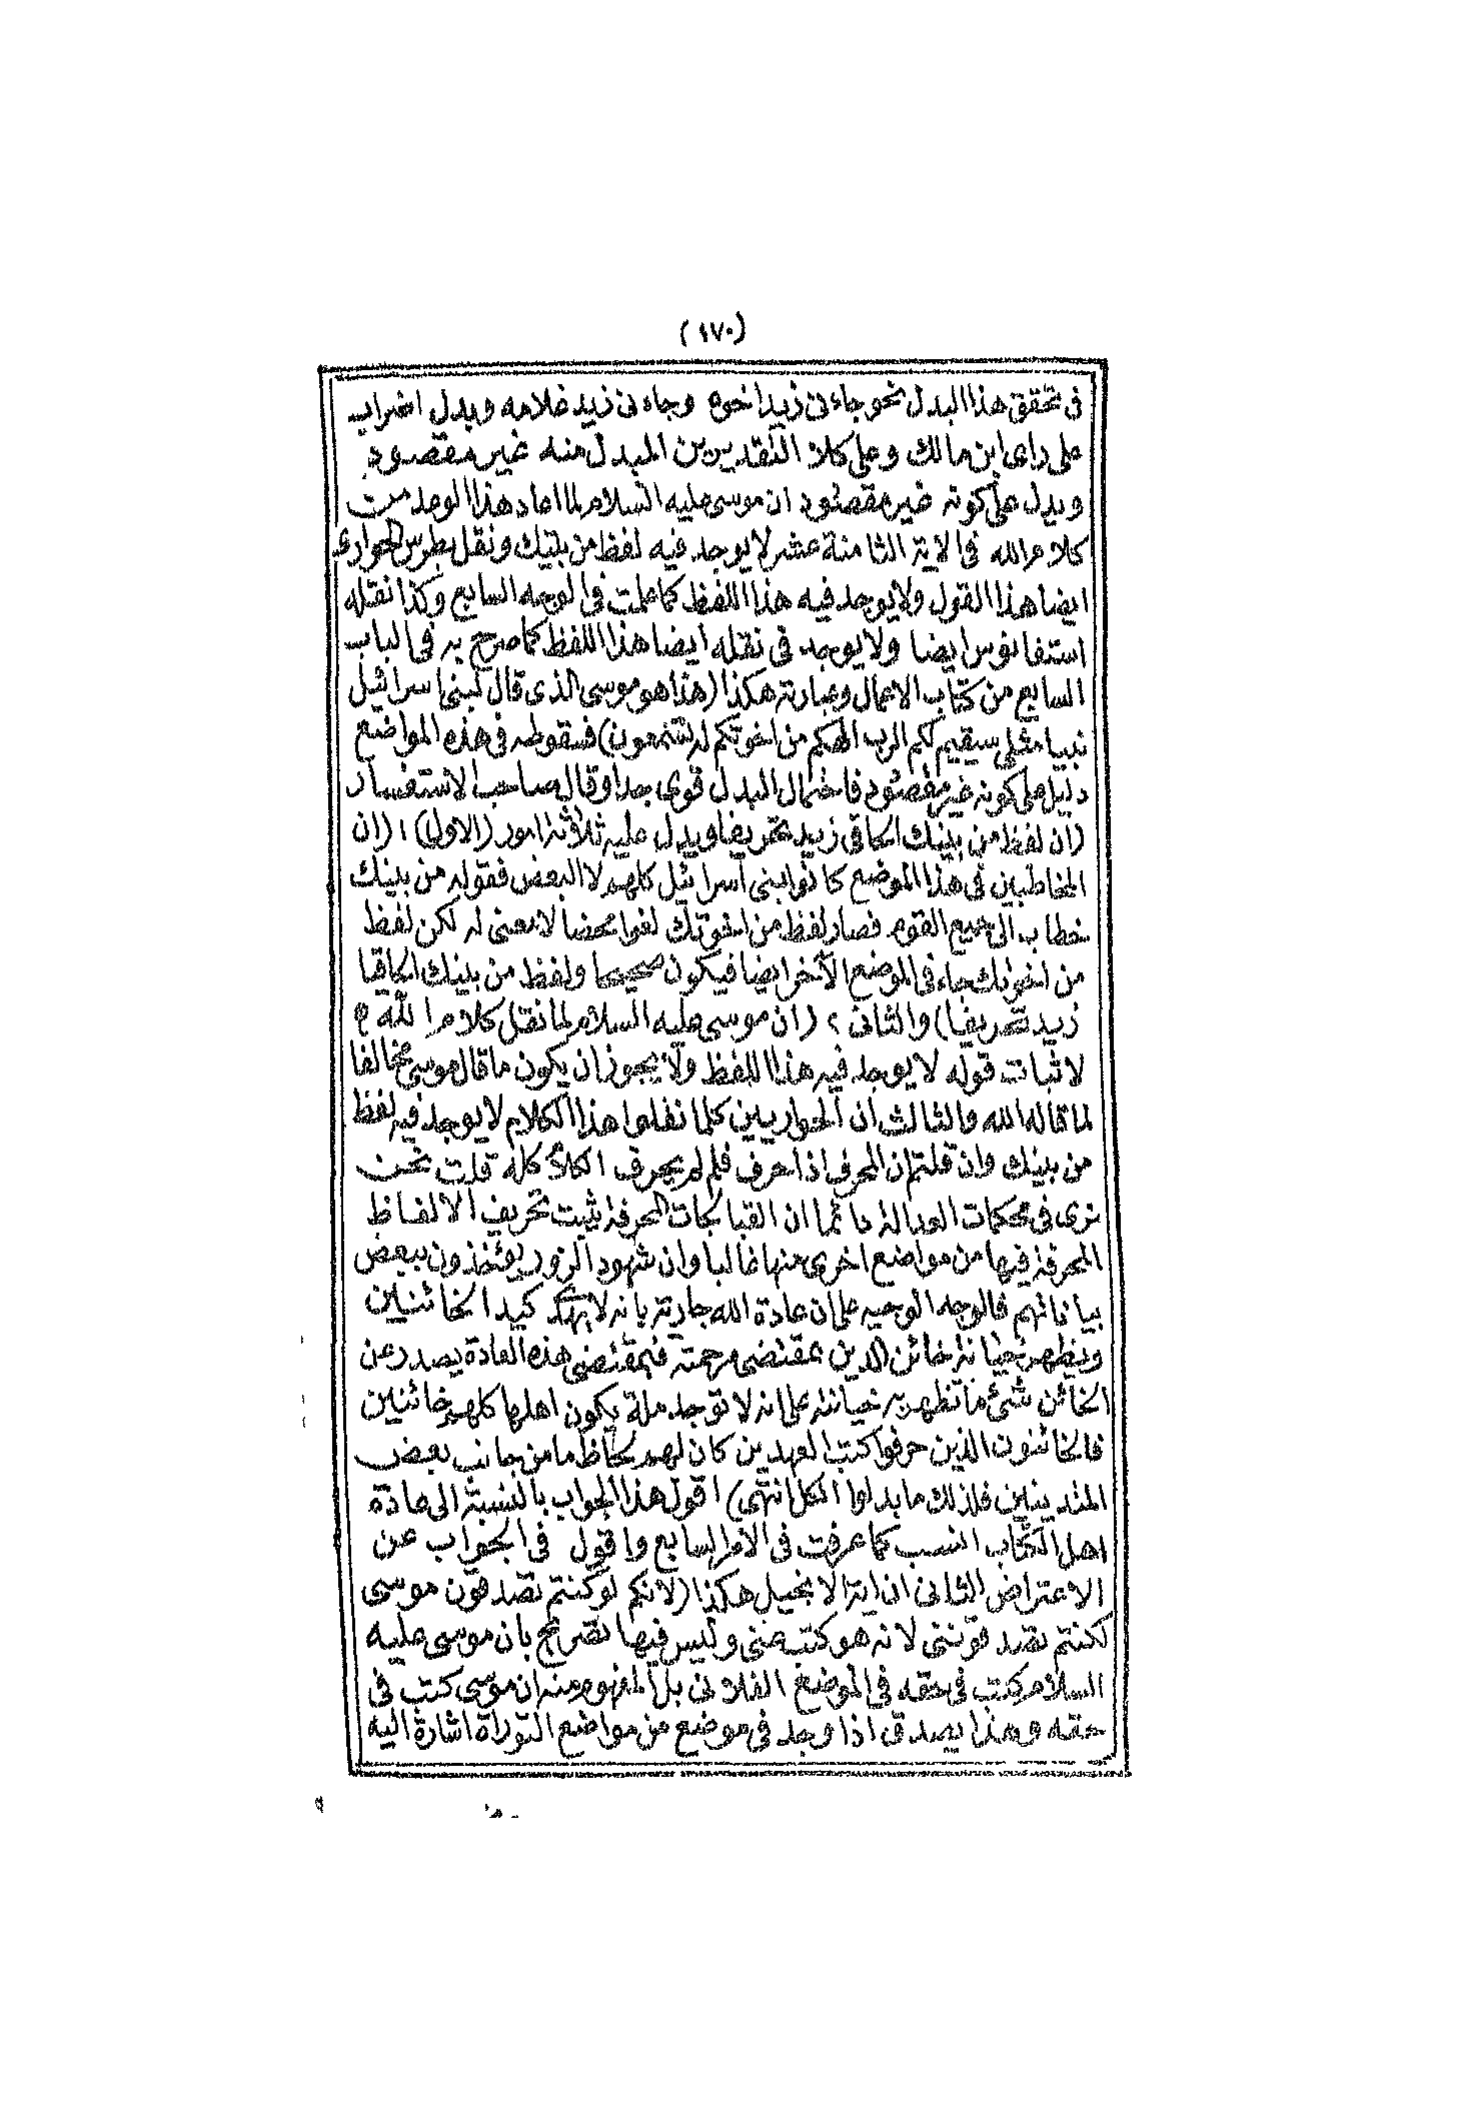 (١٧٠)
فى تحقق هذا البدل نحو جاءنى زيد اخوه وجاءنى زيد غلامه وبدل اضراب
على راى ابن مالك وعلى كلا التقديرين المبدل منه غير مقصود
ويدل على كونه غير مقصود ان موسى عليه السلام لما اعاد هذا الوعد من
كلام الله فى الاية الثامنة عشر لا يوجد فيه لفظ من بينك ونقل بطرس الحوارى
ايضا هذا القول ولا يوجد فيه هذا اللفظ كما علمت فى الوجه السابع وكذا نقله
استفانوس ايضا ولا يوجد فى نقله ايضا هذا اللفظ كما صرح به فى الباب
السابع من كتاب الاعمال وعبارته هكذا (هذا هو موسى الذى قال لبنى اسرائيل
نبيا مثلى سيقيم لكم الرب الهكم من اخوتكم له تسمعون) فسقوطه فى هذه المواضع
دليل على كونه غير مقصود فاحتمال البدل قوى جدا وقال صاحب الاستفسار
(ان لفظ من بينك الحاقى زيد تحريفا ويدل عليه ثلاثة امور (الاول) ١ (ان
المخاطبين فى هذا الموضع كانوا بنى اسرائيل كلهم لا البعض فقوله من بينك
خطاب الى جميع القوم فصار لفظ من اخوتك لغوا محضا لا معنى له لكن لفظ
من اخوتك جاء فى الموضع الآخر ايضا فيكون صحيحا ولفظ من بينك الحاقيا
زيد تحريفا) والثانى ٢ (ان موسى عليه السلام لما نقل كلام الله
لاثبات قوله لا يوجد فيه هذا اللفظ ولا يجوز ان يكون ما قال موسى مخالفا
لما قاله الله والثالث ان الحواريين كلما نقلوا هذا الكلام لا يوجد فيه لفظ
من بينك وان قلتم ان المحرف اذا حرف فلم لم يحرف الكلام كله قلت نحن
نرى فى محكمات العدالة دائما ان القبالجات المحرفة يثبت تحريف الالفاظ
المحرفة فيها من مواضع اخرى منها غالبا وان شهود الزور يؤخذون ببعض
بياناتهم فالوجه الوجيه على ان عادة الله جارية بانه لا يهدى كيد الخائنين
ويظهر خيانة خائن الدين بمقتضى مرحمته فبمقتضى هذه العادة يصدر عن
الخائن شئ ما تظهر به خيانته على انه لا توجد ملة يكون اهلها كلهم خائنين
فالخائنون الذين حرفوا كتب العهدين كان لهم لحاظ ما من جانب بعض
المتدينين فلذلك ما بدلوا الكل انتهى) اقول هذا الجواب بالنسبة الى عادة
اهل الكتاب انسب كما عرفت فى الامر السابع واقول فى الجواب عن
الاعتراض الثانى ان اية الانجيل هكذا (لانكم لو كنتم تصدقون موسى
لكنتم تصدقوننى لانه هو كتب عنى وليس فيها تصريح بان موسى عليه
السلام كتب فى حقه فى الموضع الفلانى بل المفهوم منه ان موسى كتب فى
حقه وهذا يصدق اذا وجد فى موضع من مواضع التوراة اشارة اليه